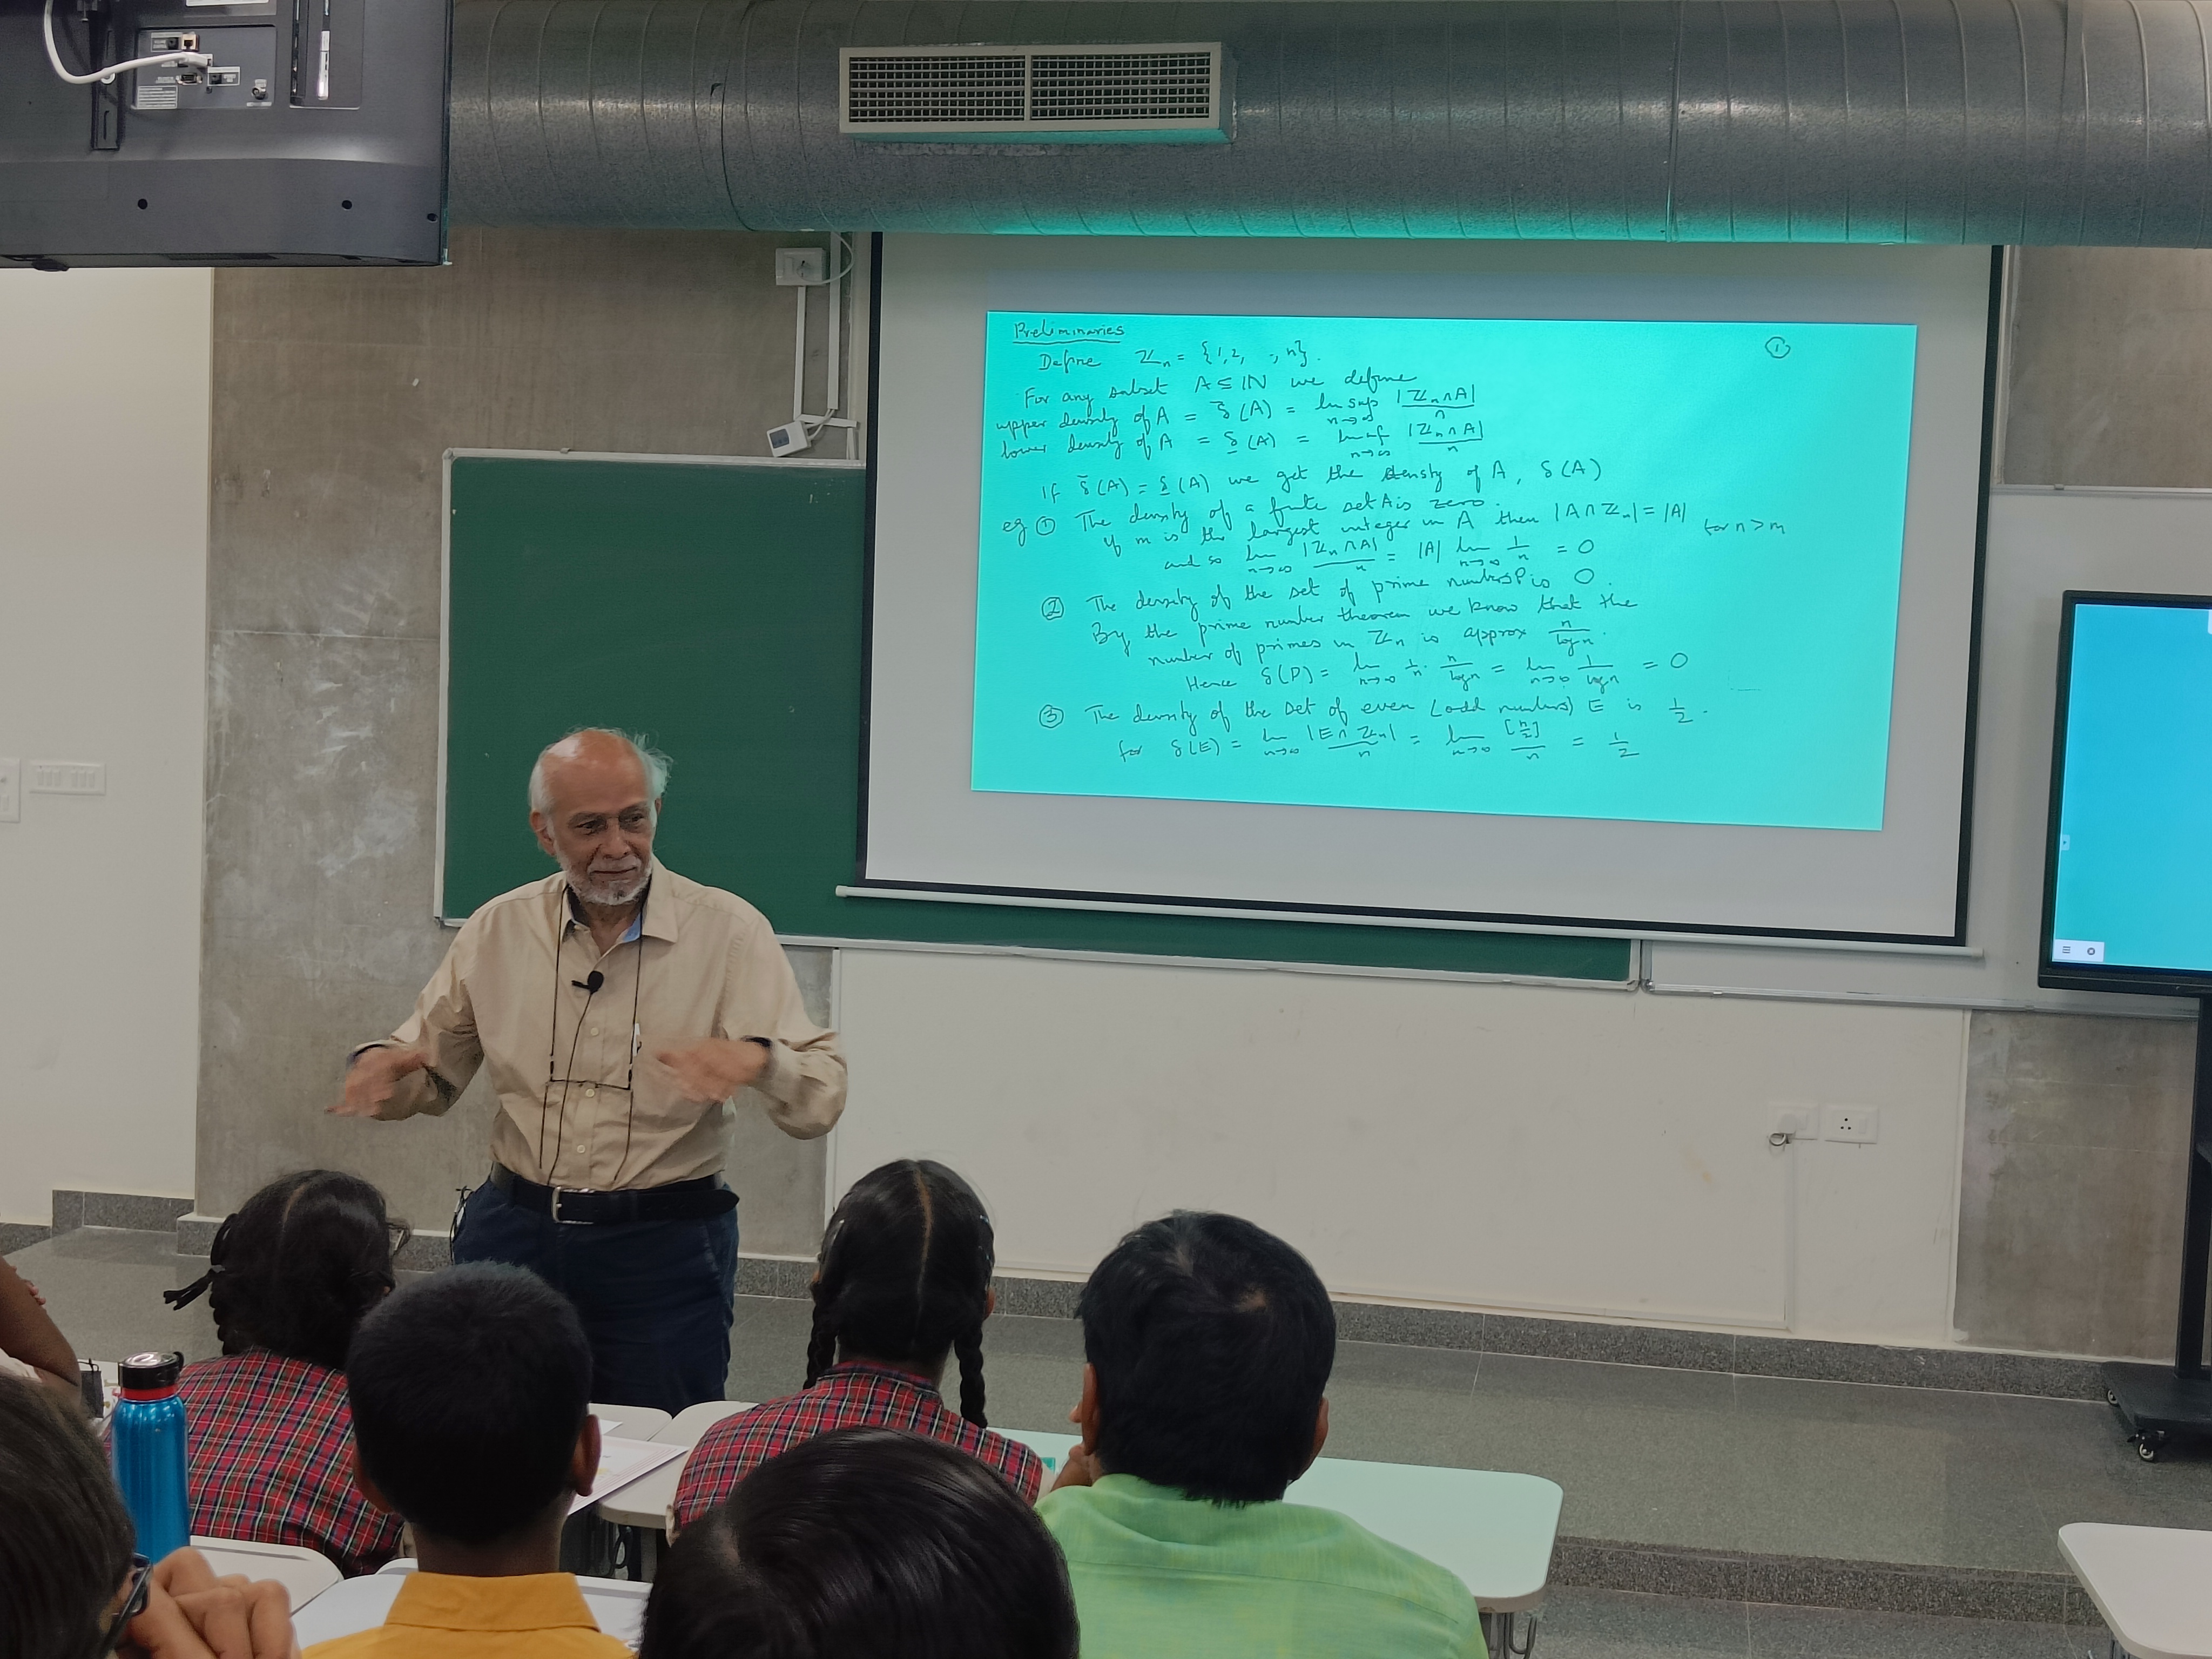 Preliminaries
①
Define ℤₙ = {1,2, .., n}.
For any subset A ⊆ ℕ we define
upper density of A = δ̄(A) = lim sup n→∞ |ℤₙ∩A|/n
lower density of A = δ̲(A) = lim inf n→∞ |ℤₙ∩A|/n
If δ̄(A) = δ̲(A) we get the density of A, δ(A)
eg ① The density of a finite set A is zero.
if m is the largest integer in A then |A∩ℤₙ| = |A| for n>m
and so lim n→∞ |ℤₙ∩A|/n = |A| lim n→∞ 1/n = 0
② The density of the set of prime numbers P is 0.
By the prime number theorem we know that the
number of primes in ℤₙ is approx n/log n.
Hence δ(P) = lim n→∞ 1/n · n/log n = lim n→∞ 1/log n = 0
③ The density of the set of even (odd numbers) E is 1/2.
for δ(E) = lim n→∞ |E∩ℤₙ|/n = lim n→∞ [n/2]/n = 1/2